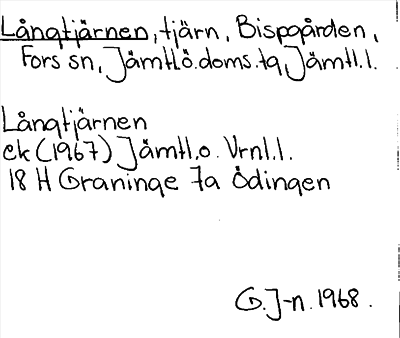 Långtjärnen, tjärn, Bispgården,
Fors sn, Jämtl.ö.doms.tg, Jämtl.l.
Långtjärnen
ek (1967) Jämtl.o. Vrnl.l.
18 H Graninge 7a Ödingen
G.J-n. 1968.